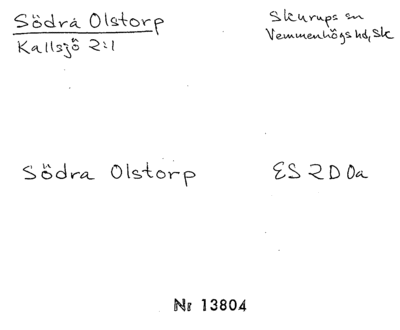 Södra Olstorp
Kallsjö 2:1
Skurups sn
Vemmenhögs hd, Sk
Södra Olstorp
ES 2D 0a
Nr 13804